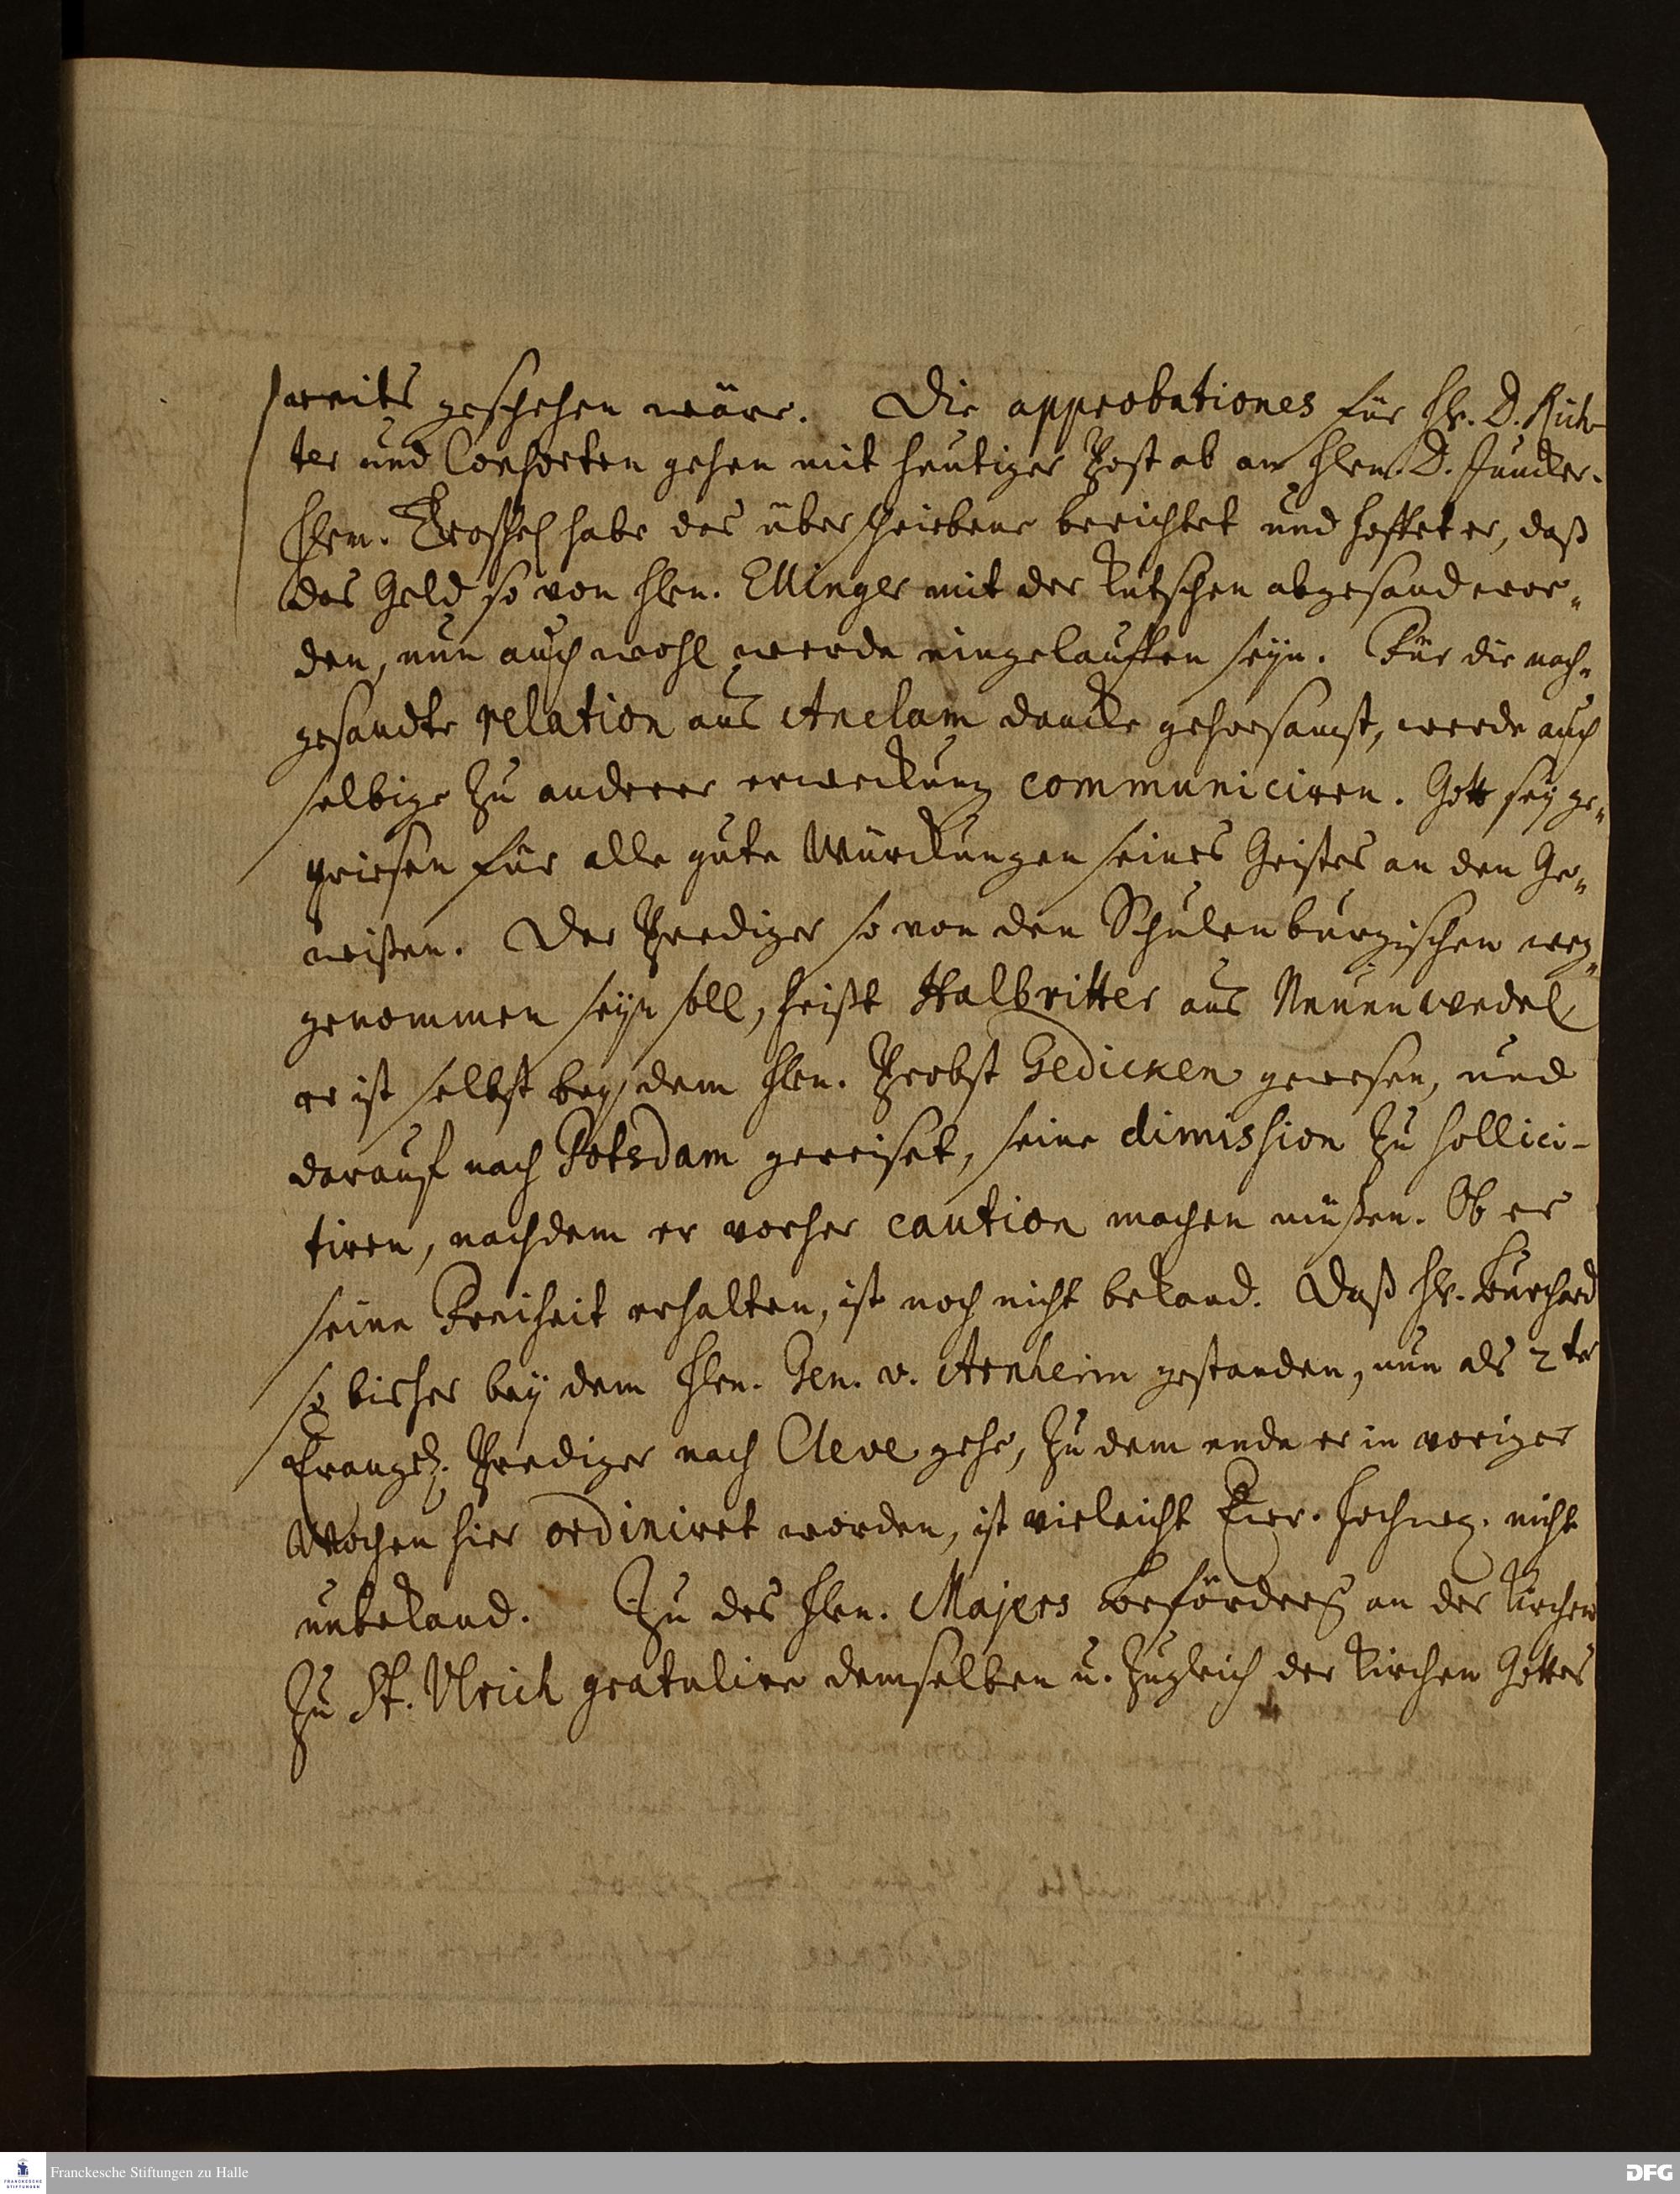 reits geschehen wäre. Die approbationes für H. D. Rich-
ter und Consorten gehen mit heutiger Post ab an Hrn. D. Juncker.
Hrn. Troschel habe das überschriebene berichtet und hoffet er, daß
das Geld so von Hrn. Ellinger mit der Kutschen abgesand wor-
den, nun auch wohl werde eingelauffen seyn. Für die nach-
gesandte relation aus Anclam dancke gehorsamst, werde auch
selbige zu anderer erweckung communiciren. Gott sey ge-
priesen für alle gute Würckungen seines Geistes an den Ge-
wißen. Der Prediger so von den Schulenburgischen weg-
genommen seyn soll, heißt Halbritter aus Neuenwedel
er ist selbst bey dem Hrn. Probst Gedicken gewesen, und
darauf nach Potsdam gereiset, seine dimission zu sollici-
tiren, nachdem er vorher caution machen müßen. Ob er
seine Freiheit erhalten, ist noch nicht bekand. Daß H. Burchard
so bisher bey dem Hrn. Gen. v. Arnheim gestanden, nun als 2te
Evangel. Prediger nach Cleve gehe, zu dem ende er in voriger
Wochen hier ordiniret worden, ist vieleicht Ewr. Hochw. nicht
unbekand. Zu des Hrn. Majers Beförderg an der Kirchen
zu St. Ulrich gratulire demselben u. zugleich der Kirchen Gottes
Franckesche Stiftungen zu Halle
DFG